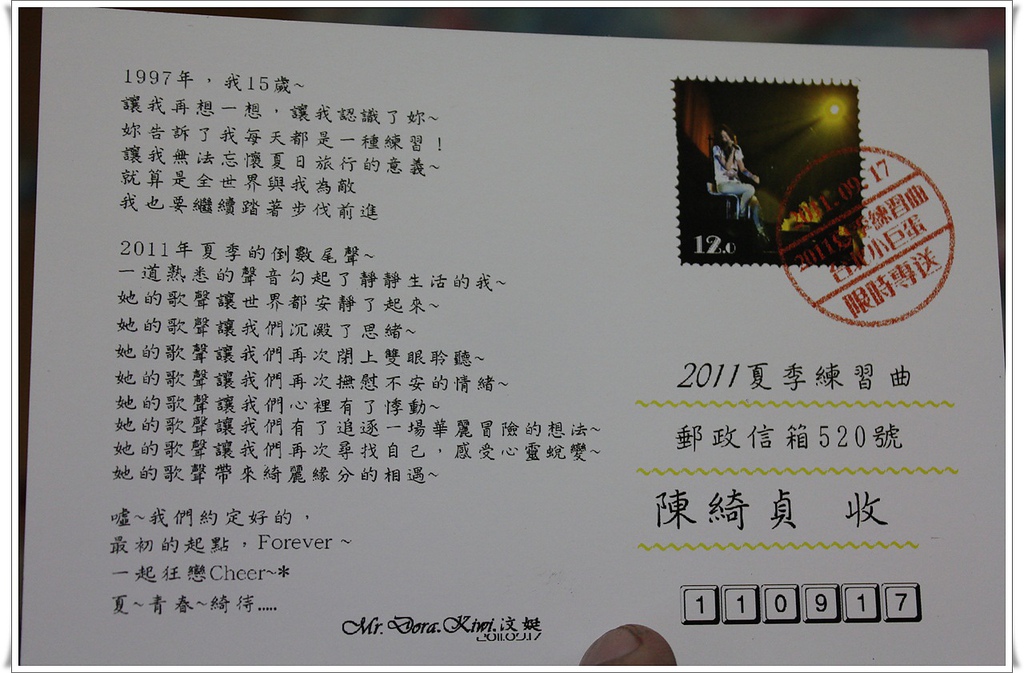 1997年，我15歲~
讓我再想一想，讓我認識了妳~
妳告訴了我每天都是一種練習！
讓我無法忘懷夏日旅行的意義~
就算是全世界與我為敵
我也要繼續踏著步伐前進
2011年夏季的倒數尾聲~
一道熟悉的聲音勾起了靜靜生活的我~
她的歌聲讓世界都安靜了起來~
她的歌聲讓我們沉澱了思緒~
她的歌聲讓我們再次閉上雙眼聆聽~
她的歌聲讓我們再次撫慰不安的情緒~
她的歌聲讓我們心裡有了悸動~
她的歌聲讓我們有了追逐一場華麗冒險的想法~
她的歌聲讓我們再次尋找自己，感受心靈蛻變~
她的歌聲帶來綺麗緣分的相遇~
噓~我們約定好的，
最初的起點，Forever~
一起狂戀Cheer~*
夏~青春~綺待.....
Mr.Dora.Kiwi.汶娗
2011.09.17
12.0
2011.09.17
2011夏季練習曲
台北小巨蛋
限時專送
2011夏季練習曲
郵政信箱520號
陳綺貞 收
110917